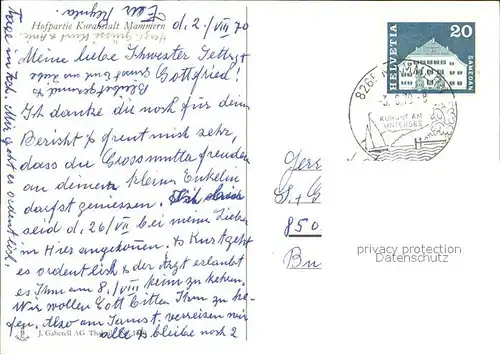 Hofpartie Kuranstalt Mammern
d. 2./VIII 70
Meine liebe Schwester Jettry
Gottfried!
Ich danke die noch für dein
Bericht & freut mich sehr,
dass du Grossmutterfreuden
an deinem kleinen Enkelin
darfst geniessen.
seid d. 26/VII bei meine Liebe
in Hier angekommen. & Kurt geht
es ordentlich & der Arzt erlaubt
es Ihm am 8./VIII heim zu kehren.
Wir wollen Gott bitten Ihm zu hel-
fen. Also am Samst. verreisen wir
alle & bleibe noch 2
Tage in Zch. Mir geht es ordentlich.
J. Gaberell AG
HELVETIA
20
SAMEDAN
KURORT AM
UNTERSEE
850
privacy protection
Datenschutz